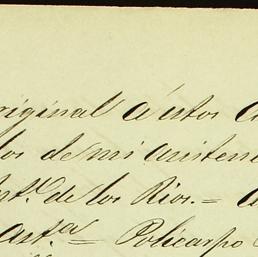 riginal á estos
los de mi asisten
nt.º de los Rios.=
Ast.ª = Policarpo